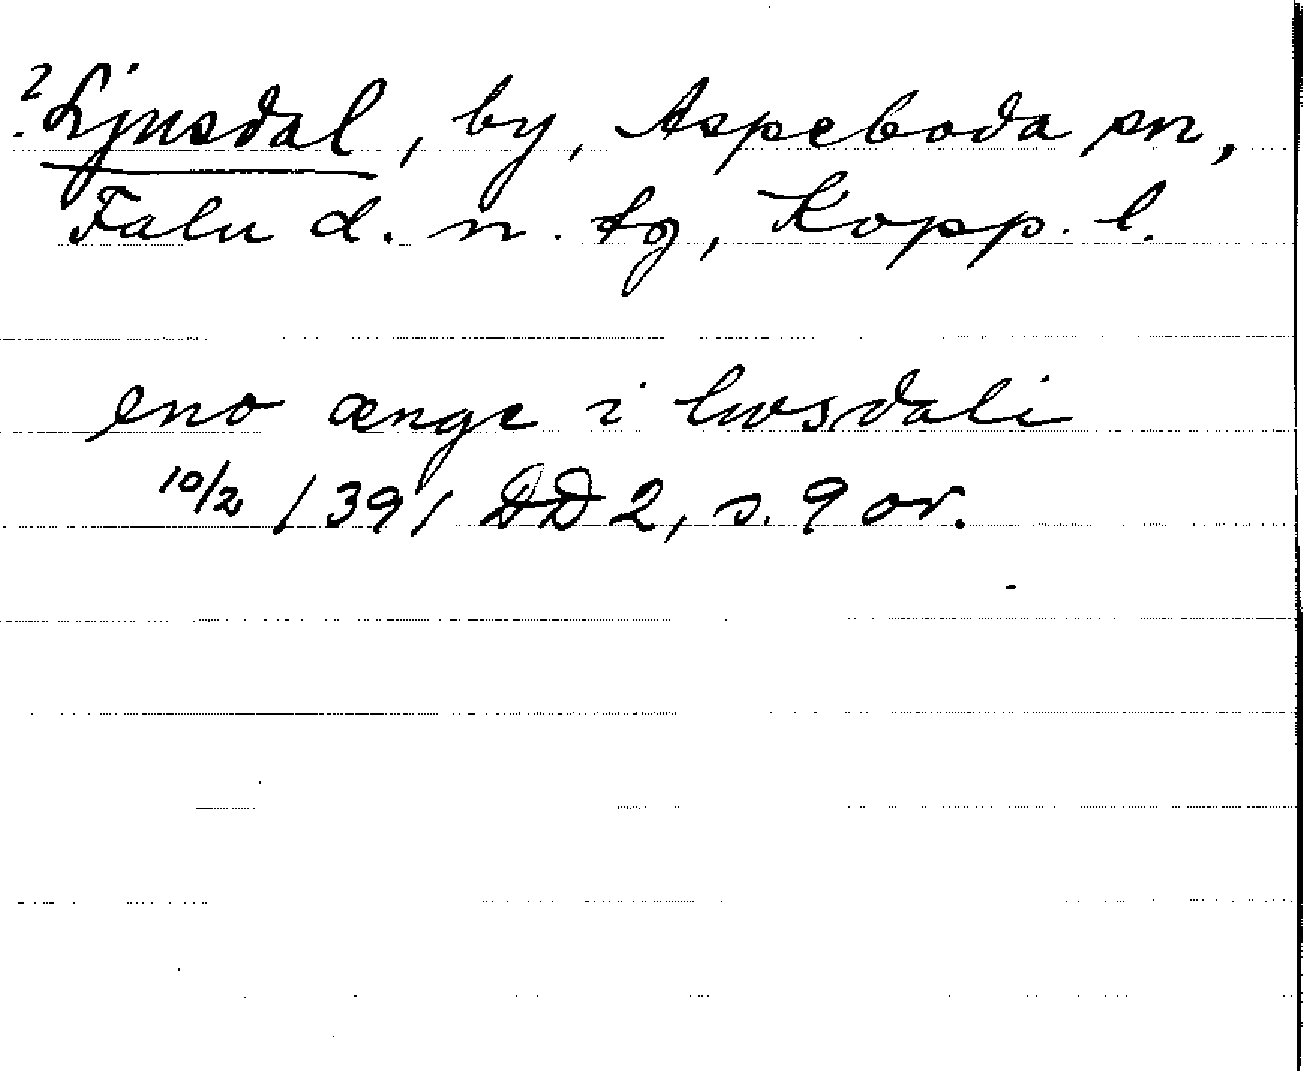 ? Ljusdal, by, Aspeboda sn,
Falu d. n. tg, Kopp. l.
eno ænge i lwsdali
10/2 1391 DD 2, s. 9 or.